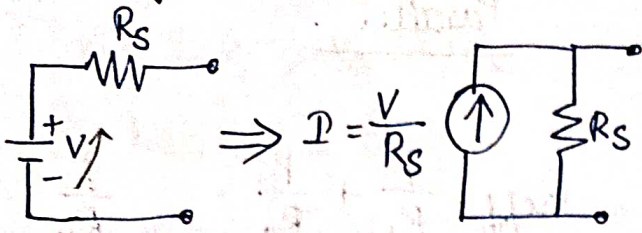 R_S
+
V
-
⇒ I = V/R_S
R_S